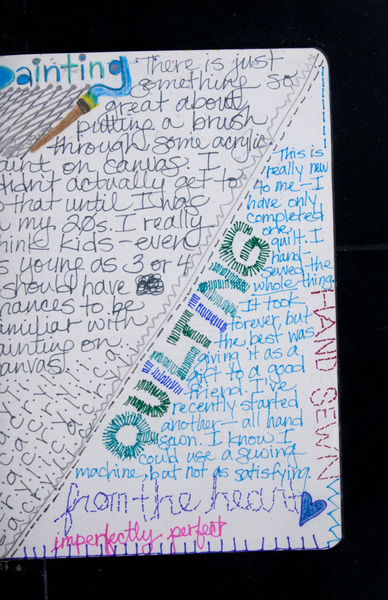 painting
There is just
something so
great about
putting a brush
through some acrylic
aint on canvas. I
didn't actually get to
that until I was
n my 20s. I really
hink kids-even
s young as 3 or 4
should have
hances to be
amiliar with
ainting on
anvas.
acrylic
acrylic
acrylic
QUILTING
This is
really new
to me-I
have only
completed
one
quilt. I
hand
sewed the
whole thing.
It took
forever, but
the best was
giving it as a
gift to a good
friend. I've
recently started
another-all hand
sewn. I know I
could use a sewing
machine, but not as satisfying
HAND SEWN
from the heart
imperfectly perfect